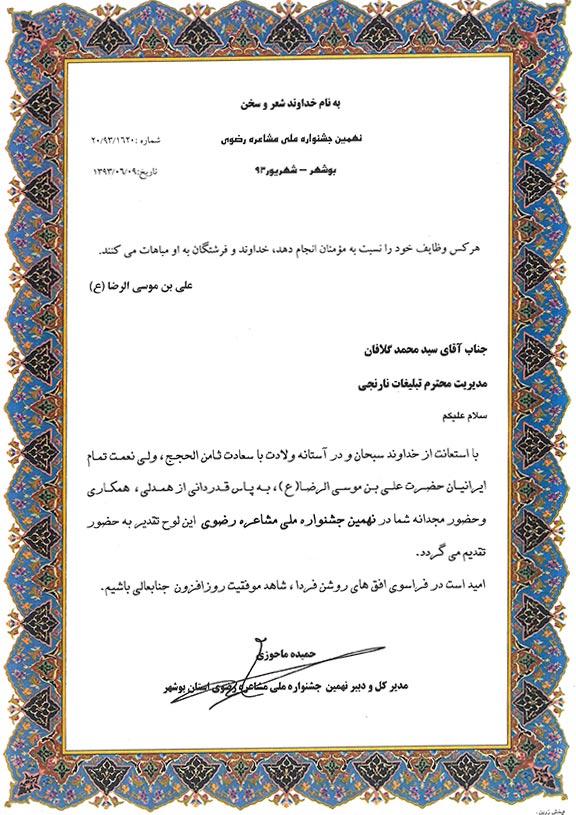 به نام خداوند شعر و سخن
نهمین جشنواره ملی مشاعره رضوی
شماره :۲۰/۹۳/۱۶۲۰
بوشهر – شهریور۹۳
تاریخ:۱۳۹۳/۰۶/۰۹
هرکس وظایف خود را نسبت به مؤمنان انجام دهد، خداوند و فرشتگان به او مباهات می کنند.
علی بن موسی الرضا (ع)
جناب آقای سید محمد گلافان
مدیریت محترم تبلیغات نارنجی
سلام علیکم
با استعانت از خداوند سبحان و در آستانه ولادت با سعادت ثامن الحجج ، ولی نعمت تمام
ایرانیان حضرت علی بن موسی الرضا(ع) ، به پاس قدردانی از همدلی ، همکاری
وحضور مجدانه شما در نهمین جشنواره ملی مشاعره رضوی این لوح تقدیر به حضور
تقدیم می گردد.
امید است در فراسوی افق های روشن فردا ، شاهد موفقیت روزافزون جنابعالی باشیم.
حمیده ماحوزی
مدیر کل و دبیر نهمین جشنواره ملی مشاعره رضوی استان بوشهر